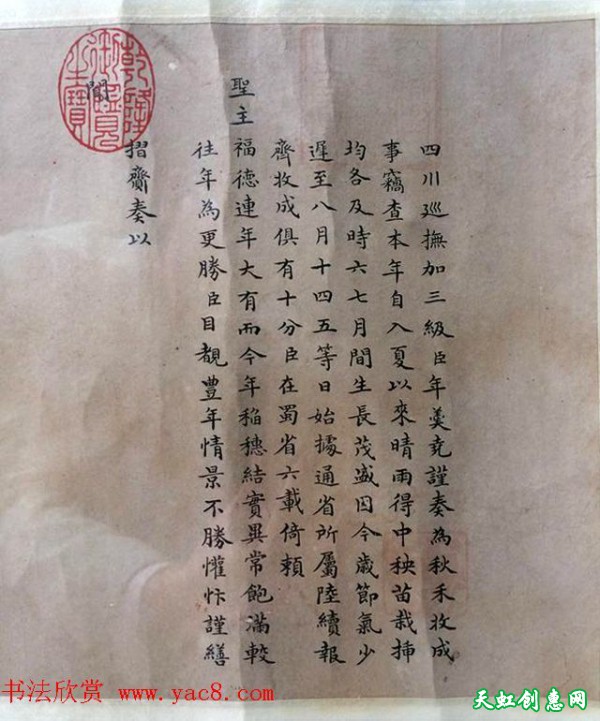 四川廵撫加三級臣年羹堯謹奏為秋禾收成
事竊查本年自入夏以來晴雨得中秧苗栽插
均各及時六七月間生長茂盛因今歲節氣少
遲至八月十四五等日始據通省所屬陸續報
齊收成俱有十分臣在蜀省六載倚賴
聖主福德連年大有而今年稲穗結實異常飽滿較
往年為更勝臣目覩豐年情景不勝懽忭謹繕
摺齎奏以
聞
乾隆御覽之寶
书法欣赏 www.yac8.com
天虹创惠网